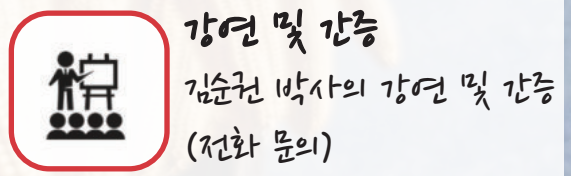 강연 및 간증
김순권 박사의 강연 및 간증
(전화 문의)